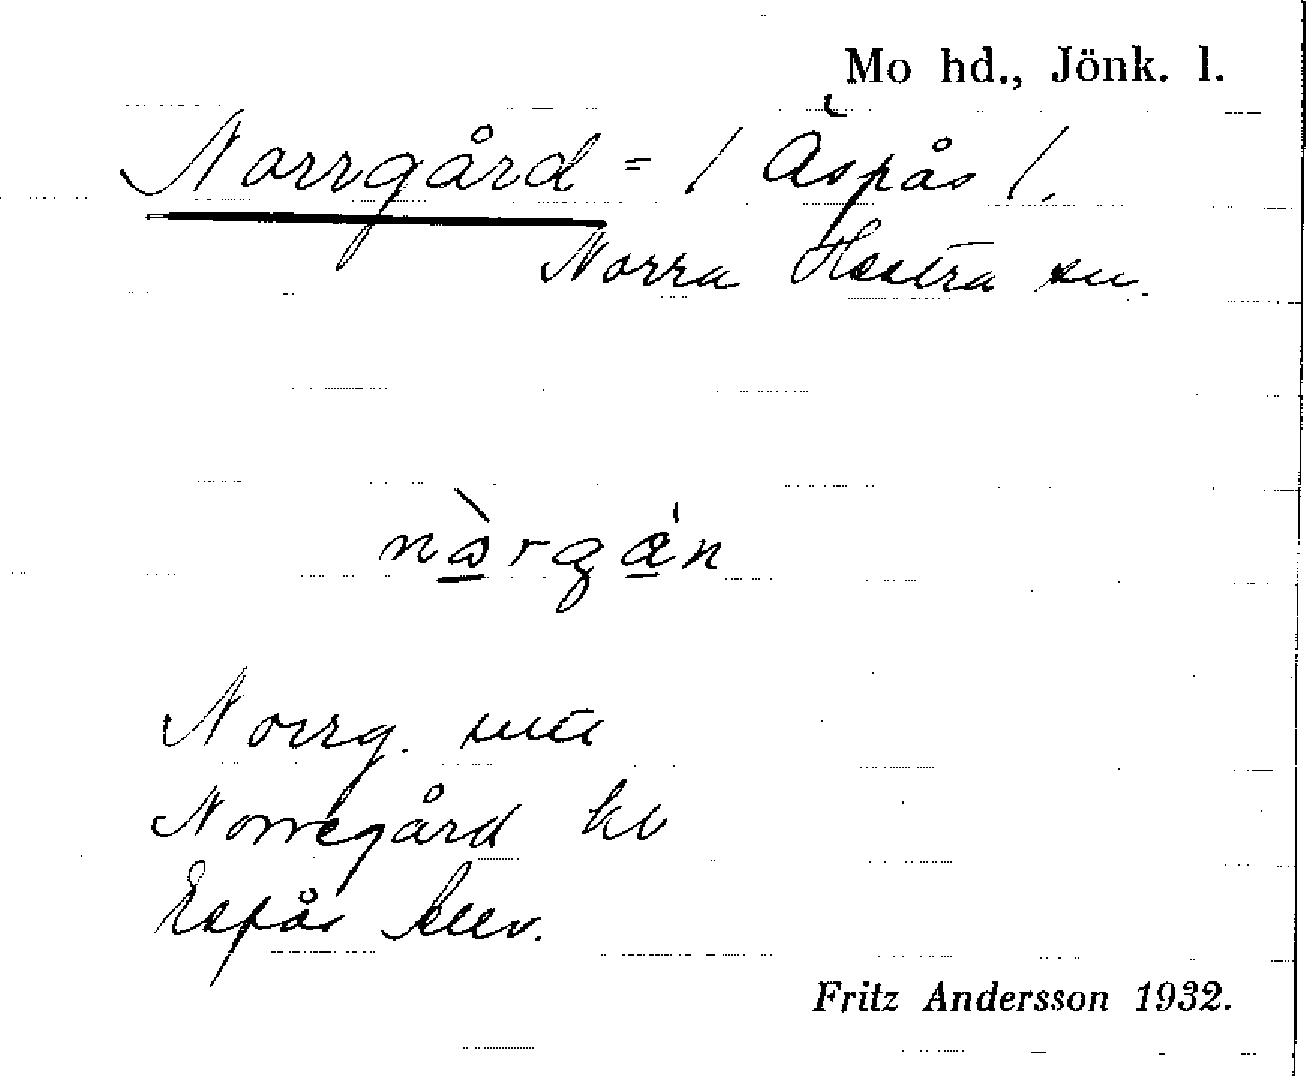 Mo hd., Jönk. l.
Norrgård = / Äspås /.
Norra Hestra sn.
Norrg.
Norregård
Espås
Fritz Andersson 1932.